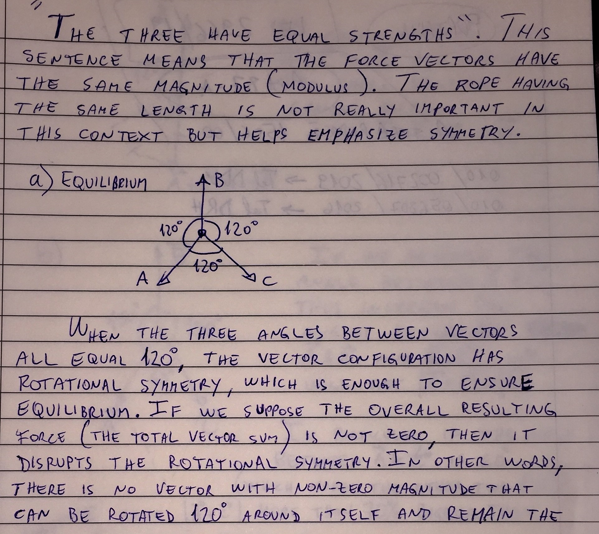 "THE THREE HAVE EQUAL STRENGTHS". THIS
SENTENCE MEANS THAT THE FORCE VECTORS HAVE
THE SAME MAGNITUDE (MODULUS). THE ROPE HAVING
THE SAME LENGTH IS NOT REALLY IMPORTANT IN
THIS CONTEXT BUT HELPS EMPHASIZE SYMMETRY.
a) EQUILIBRIUM
B
120° 120°
120°
A C
WHEN THE THREE ANGLES BETWEEN VECTORS
ALL EQUAL 120°, THE VECTOR CONFIGURATION HAS
ROTATIONAL SYMMETRY, WHICH IS ENOUGH TO ENSURE
EQUILIBRIUM. IF WE SUPPOSE THE OVERALL RESULTING
FORCE (THE TOTAL VECTOR SUM) IS NOT ZERO, THEN IT
DISRUPTS THE ROTATIONAL SYMMETRY. IN OTHER WORDS,
THERE IS NO VECTOR WITH NON-ZERO MAGNITUDE THAT
CAN BE ROTATED 120° AROUND ITSELF AND REMAIN THE